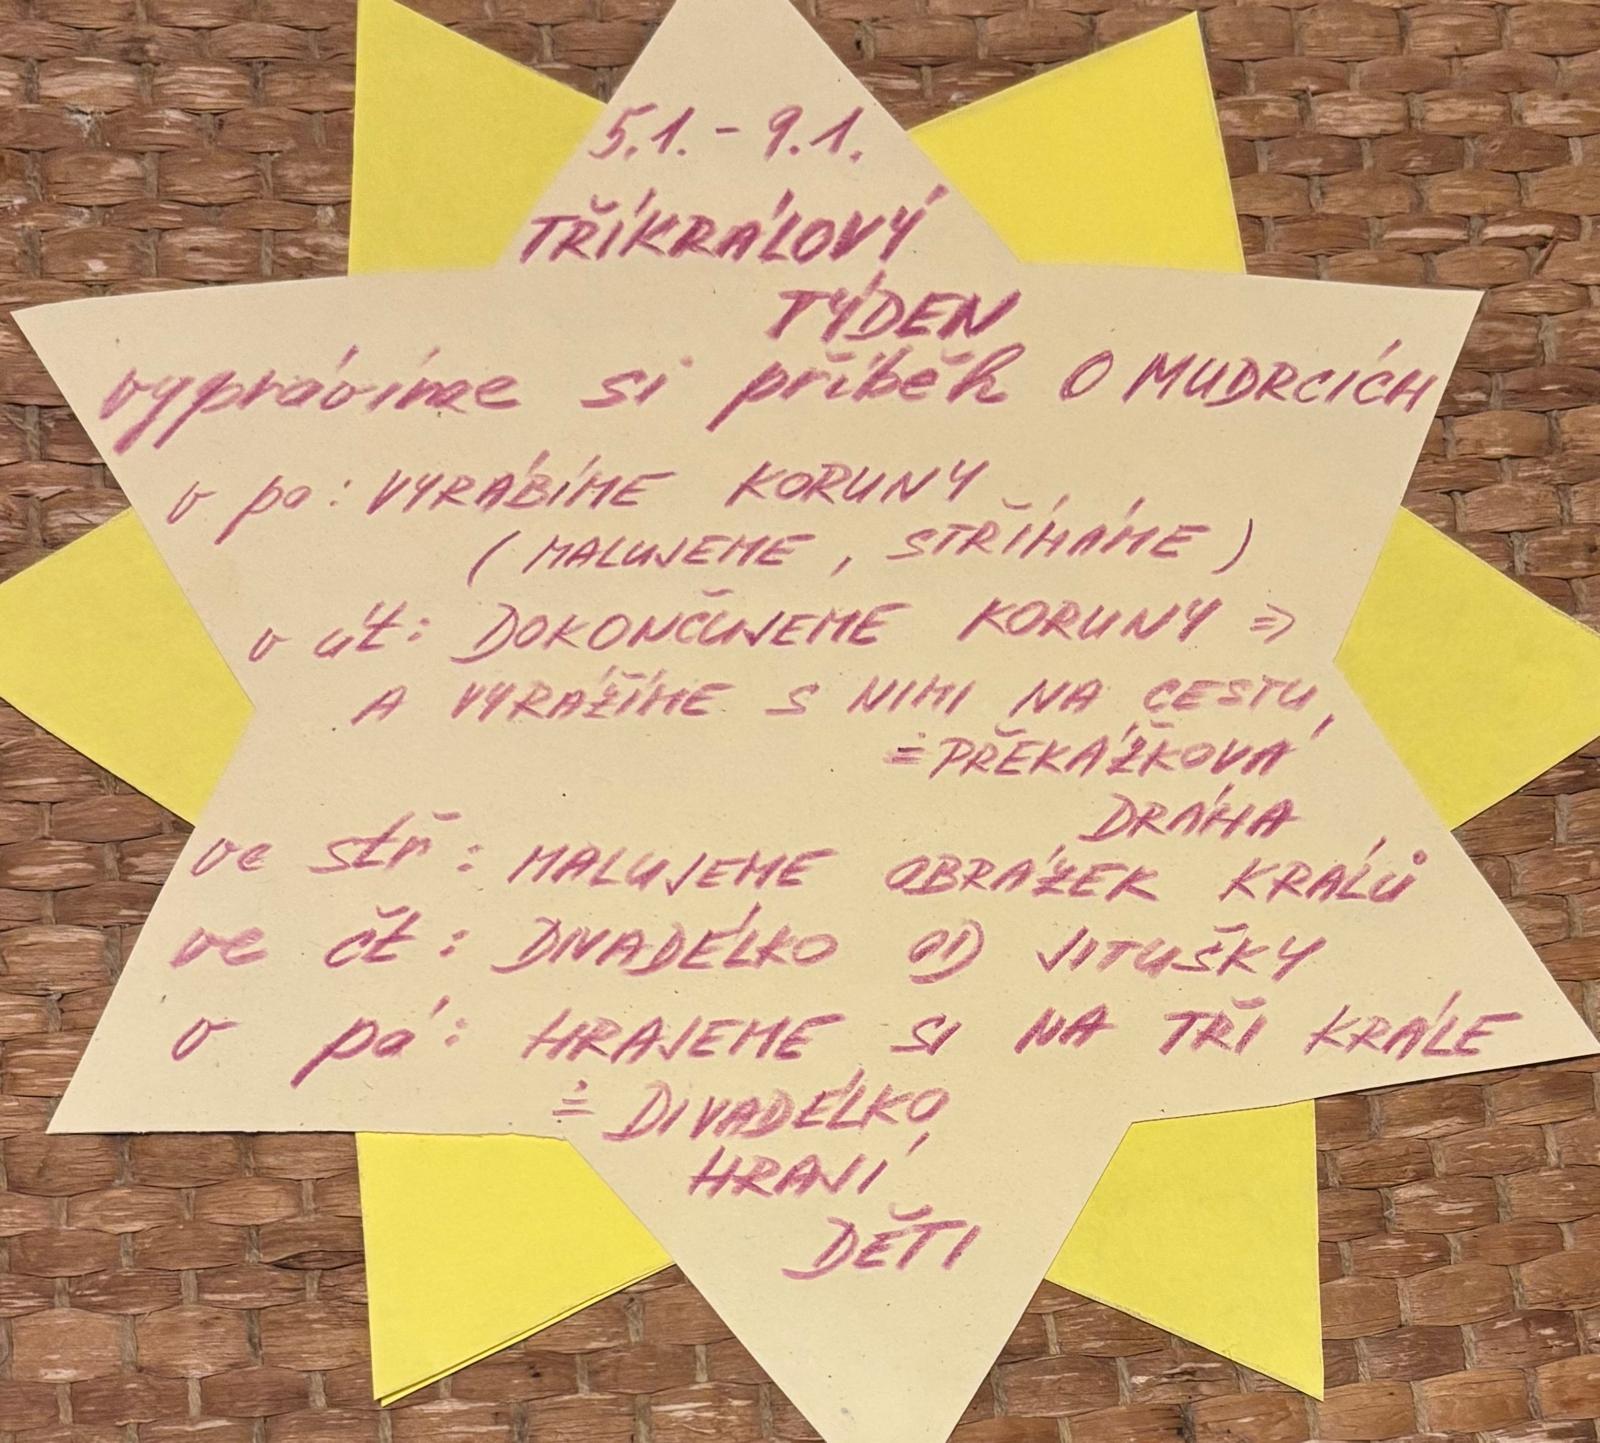 5.1. - 9.1.
TŘÍKRÁLOVÝ
TÝDEN
vyprávíme si příběh O MUDRCÍCH
v po: VYRÁBÍME KORUNY
(MALUJEME, STŘÍHÁME)
v út: DOKONČUJEME KORUNY ⇒
A VYRÁŽÍME S NIMI NA CESTU,
= PŘEKÁŽKOVÁ
DRÁHA
ve stř: MALUJEME OBRÁZEK KRÁLŮ
ve čt: DIVADÉLKO OD JITUŠKY
v pá: HRAJEME SI NA TŘI KRÁLE
≐ DIVADÉLKO
HRAJÍ
DĚTI